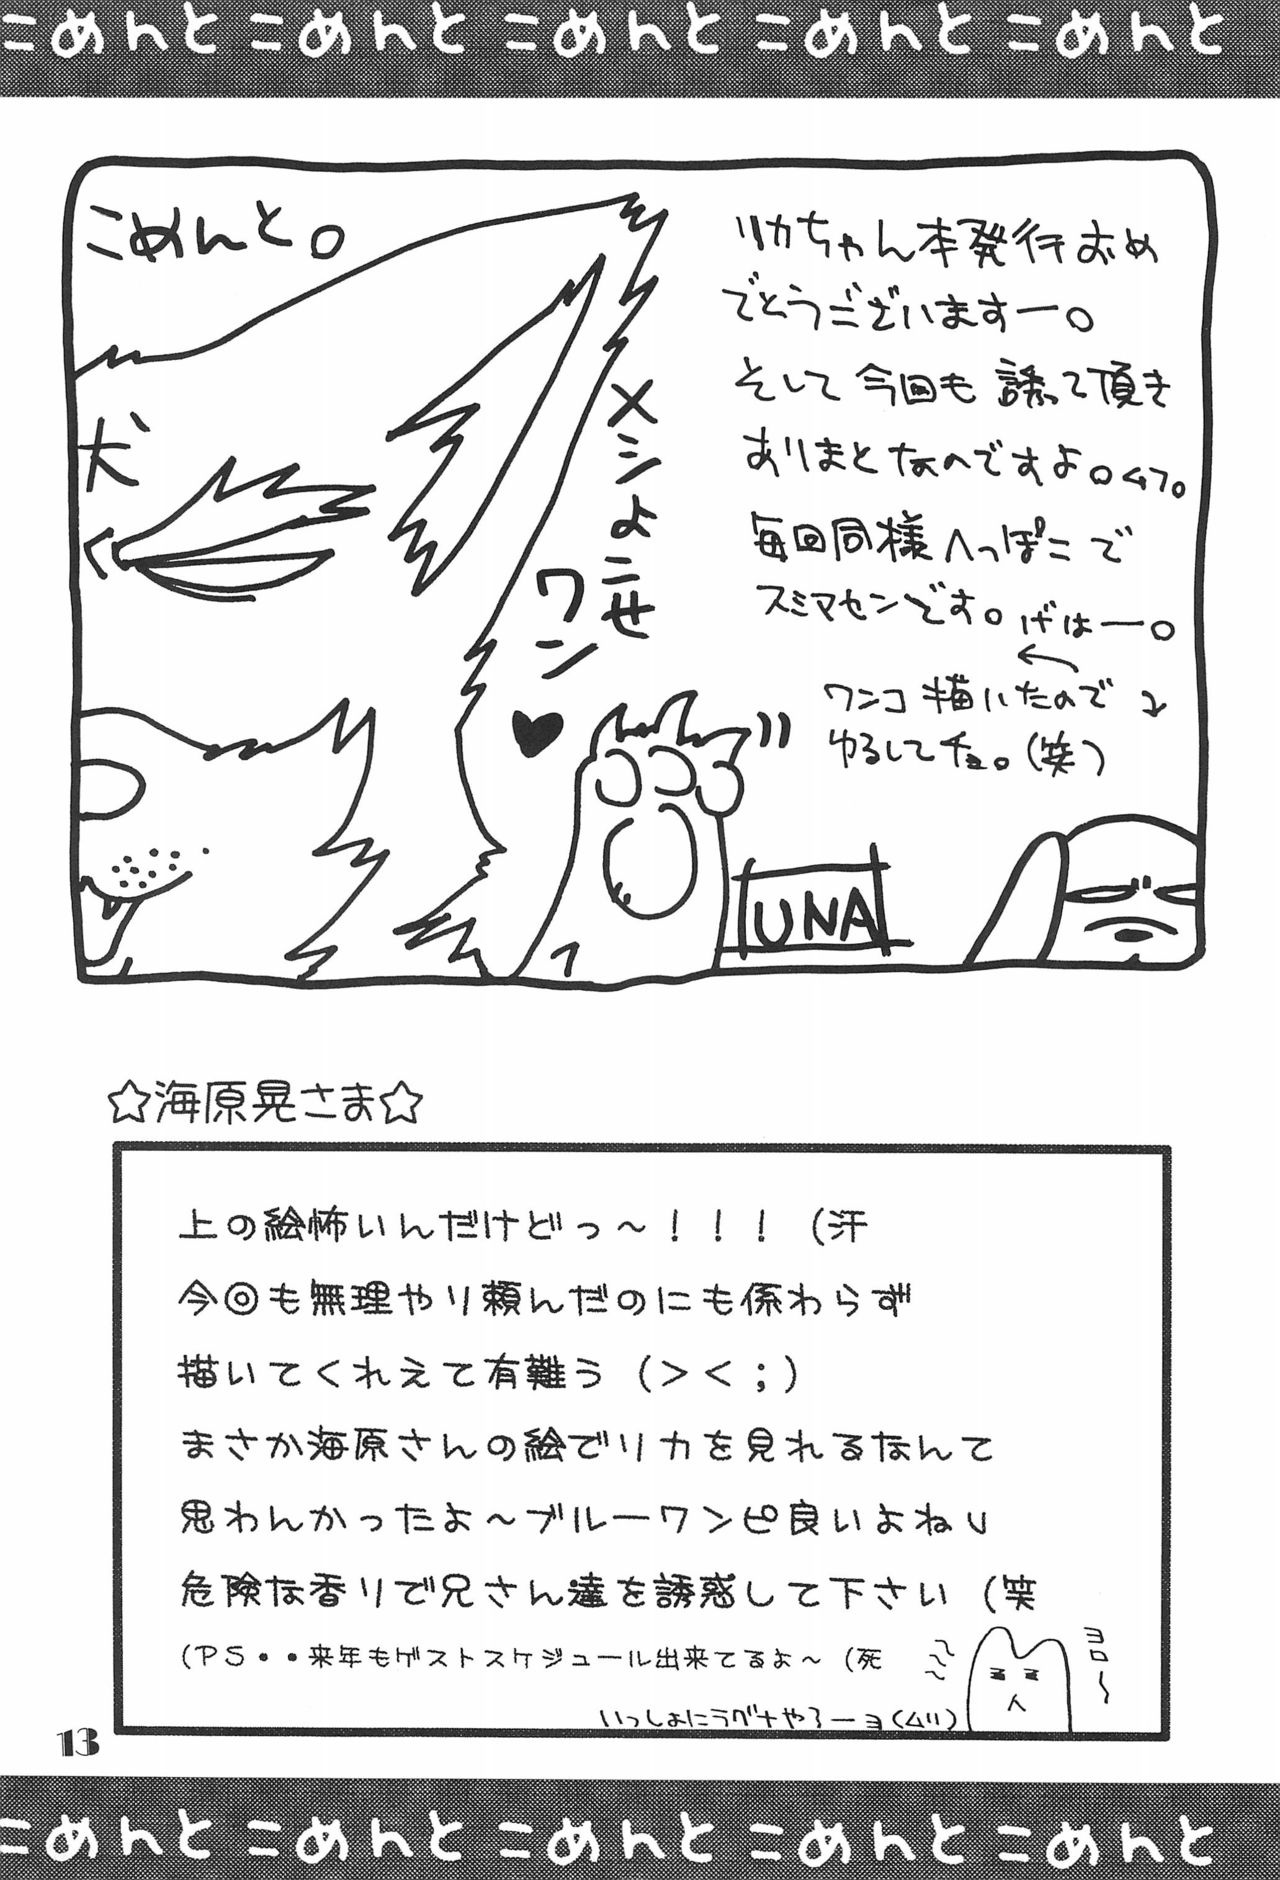 こめんと こめんと こめんと こめんと こめんと
こめんと。
リカちゃん本発行おめ
でとうございますー。
そして今回も誘って頂き
ありまとなのですよ。ムフ。
毎回同様へっぽこで
スミマセンです。げはー。
ワンコ描いたので
ゆるしてチョ。(笑)
犬
メシよこせ
ワン
UNA
☆海原晃さま☆
上の絵怖いんだけどっ～！！！（汗
今回も無理やり頼んだのにも係わらず
描いてくれえて有難う（＞＜；）
まさか海原さんの絵でリカを見れるなんて
思わんかったよ～ブルーワンピ良いよねし
危険な香りで兄さん達を誘惑して下さい（笑
（ＰＳ・・来年もゲストスケジュール出来てるよ～（死
いっしょにラグナやろーヨ(ムリ)
ヨロ～
13
こめんと こめんと こめんと こめんと こめんと